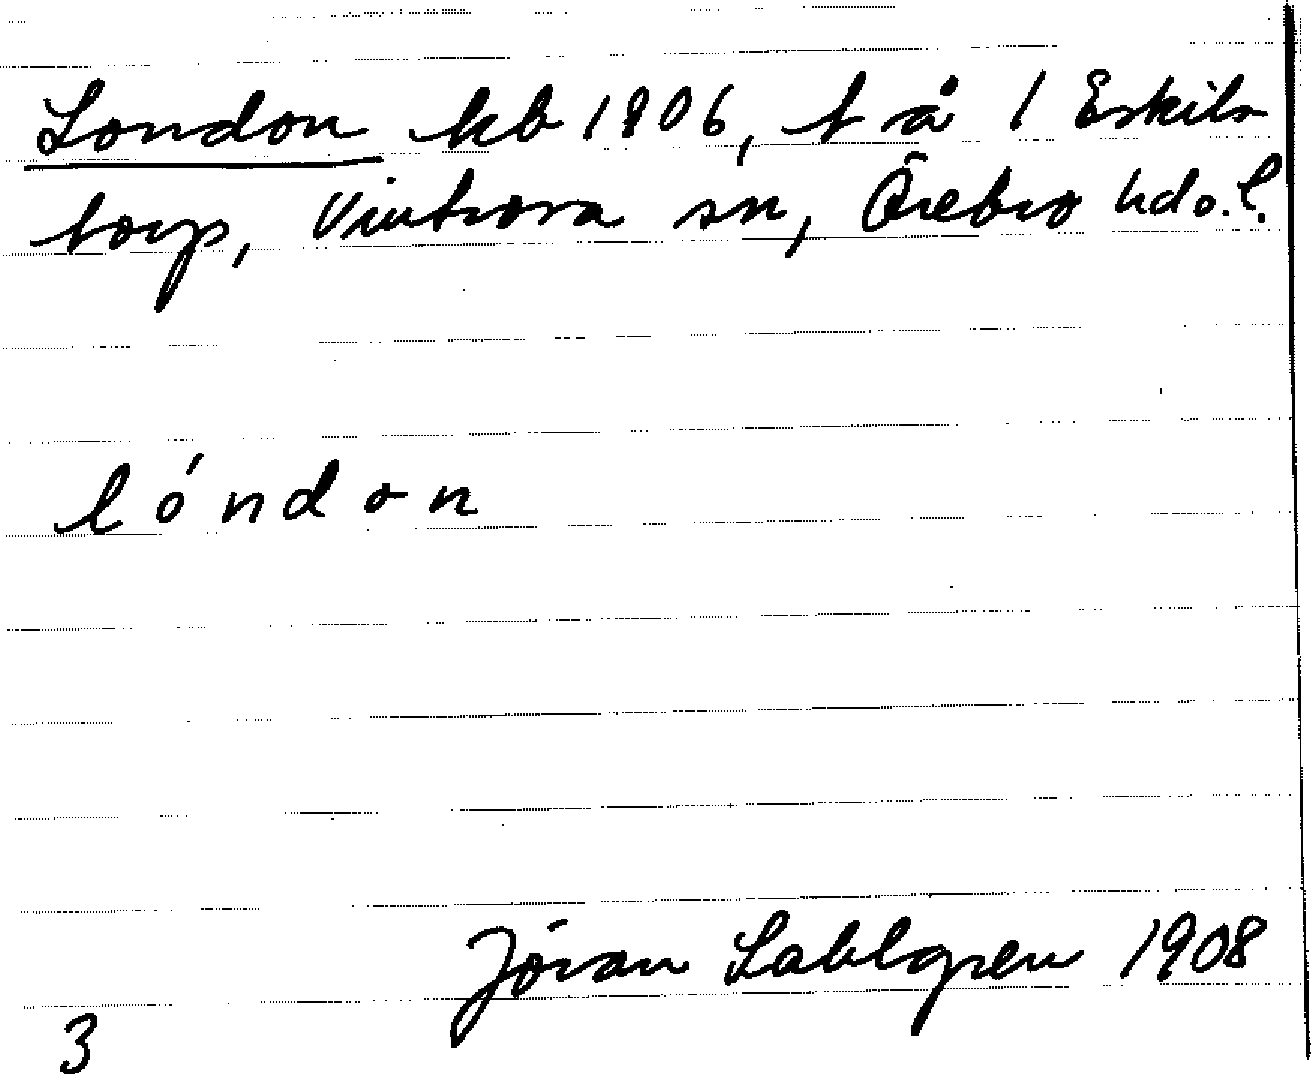 London kb 1806, t å 1 Eskils
torp, Vintrosa sn, Örebro hd o. l.
lóndon
Jöran Sahlgren 1908
3